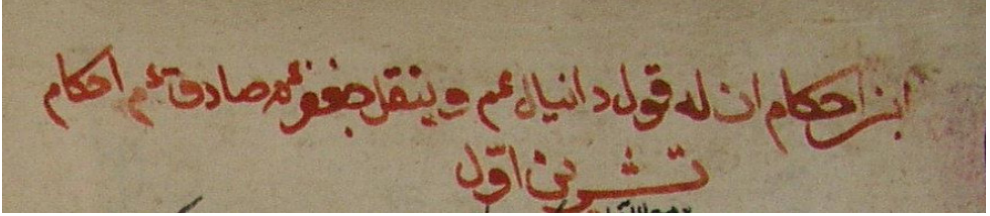 ابن احكام ان له قول دانيال عم وينقل جعفر عم صادق عم احكام
تشرين اوّل